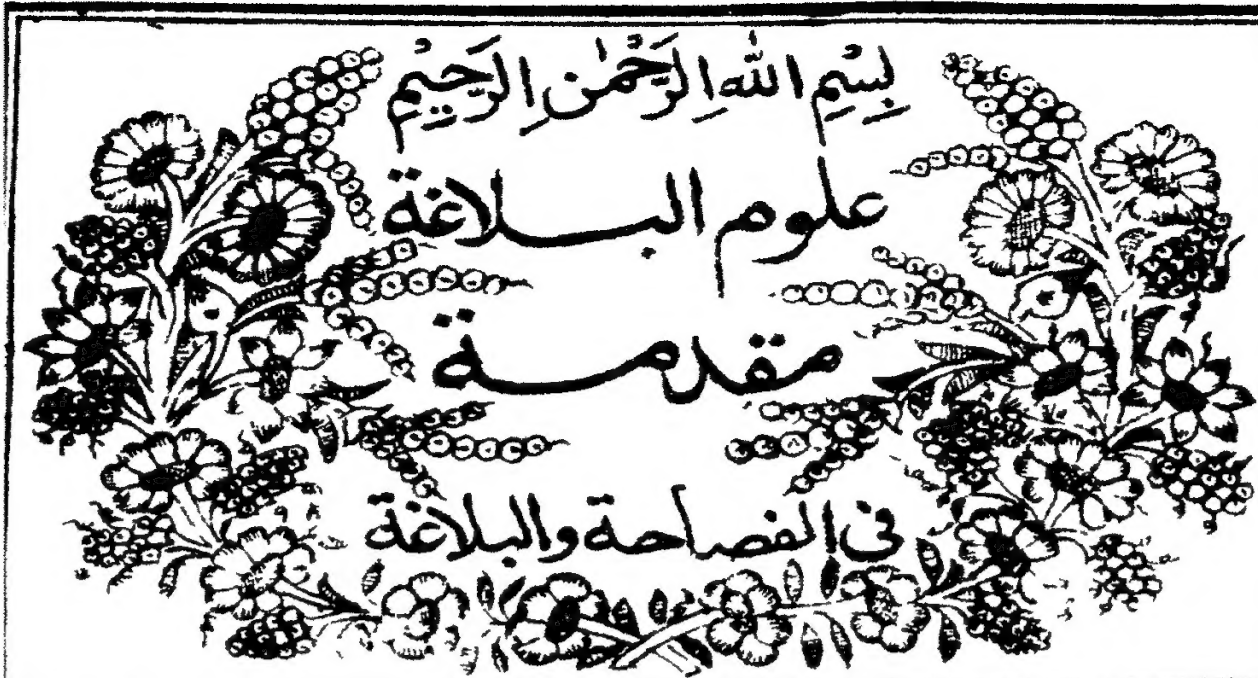 بِسْمِ اللهِ الرَّحْمٰنِ الرَّحِيْمِ
علوم البـــلاغة
مقدمـــة
فى الفصاحة والبلاغة